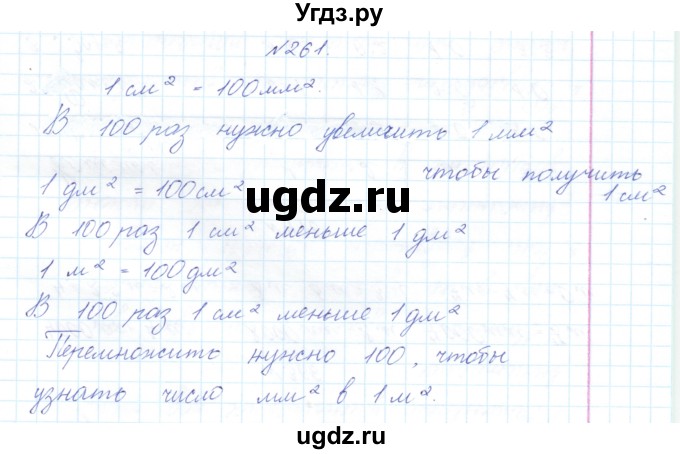 Угдз.ру
№261.
1 см² = 100 мм².
В 100 раз нужно увеличить 1 мм²
чтобы получить
1 см²
1 дм² = 100 см²
В 100 раз 1 см² меньше 1 дм²
1 м² = 100 дм²
В 100 раз 1 см² меньше 1 дм²
Перемножить нужно 100, чтобы
узнать число мм² в 1 м².
ugdz.ru
ugdz.ru
ugdz.ru